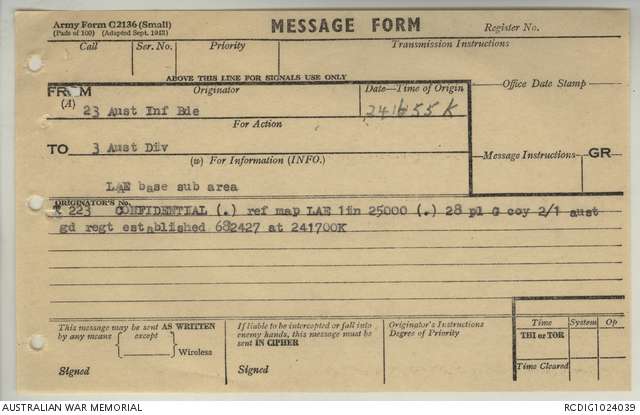 Army Form C2136 (Small)
(Pads of 100) (Adapted Sept. 1943)
MESSAGE FORM
Register No.
Call
Ser. No.
Priority
Transmission Instructions
ABOVE THIS LINE FOR SIGNALS USE ONLY
FROM
(A)
Originator
Date—Time of Origin
Office Date Stamp
23 Aust Inf Bde
241655K
For Action
TO
3 Aust Div
(w) For Information (INFO.)
Message Instructions
GR
LAE base sub area
ORIGINATOR'S No.
223 CONFIDENTIAL (.) ref map LAE 1in 25000 (.) 28 pl G coy 2/1 aust
gd regt established 682427 at 241700K
This message may be sent AS WRITTEN
by any means
except
Wireless
Signed
If liable to be intercepted or fall into
enemy hands, this message must be
sent IN CIPHER
Signed
Originator's Instructions
Degree of Priority
Time
System
Op
THI or TOR
Time Cleared
AUSTRALIAN WAR MEMORIAL
RCDIG1024039